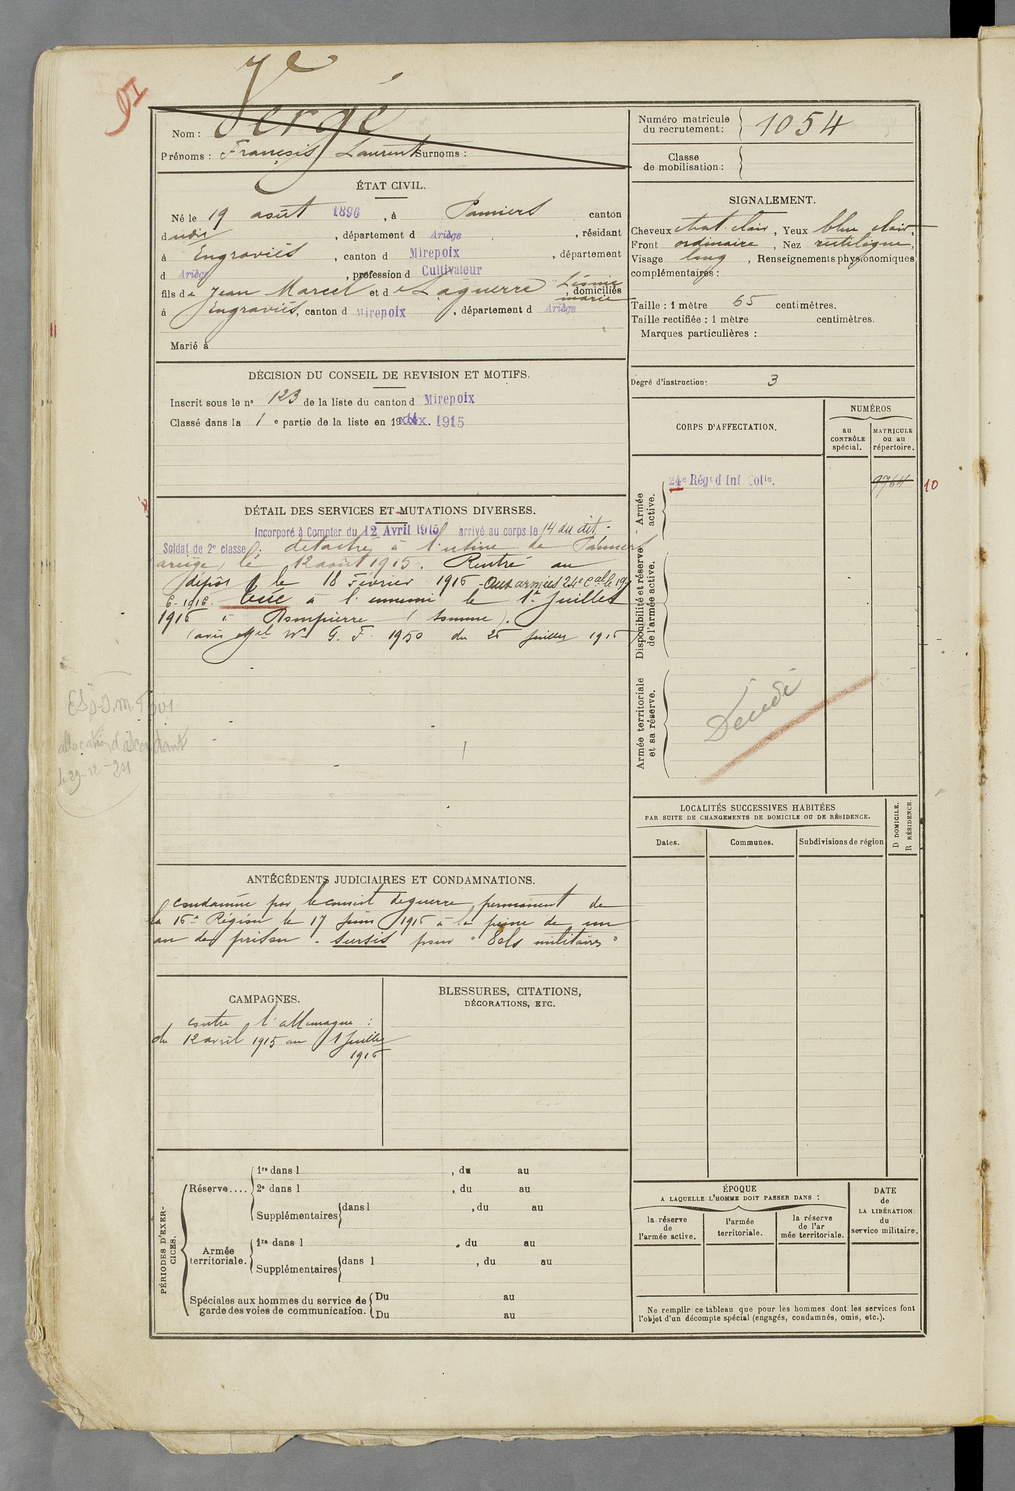 91
7e
Nom : Vergé
Prénoms : François Laurent Surnoms :
Numéro matricule du recrutement : 1054
Classe de mobilisation :
ÉTAT CIVIL.
Né le 19 août 1896, à Pamiers canton
dudit, département d Ariège, résidant
à Engraviès, canton d Mirepoix, département
d Ariège, profession d Cultivateur
fils de Jean Marcel et de Laguerre Léonie marie, domiciliés
à Engraviès, canton d Mirepoix, département d Ariège
Marié à
SIGNALEMENT.
Cheveux chat clair, Yeux bleu clair,
Front ordinaire, Nez rectiligne,
Visage long, Renseignements physionomiques
complémentaires :
Taille : 1 mètre 65 centimètres.
Taille rectifiée : 1 mètre centimètres.
Marques particulières :
Degré d'instruction : 3
DÉCISION DU CONSEIL DE REVISION ET MOTIFS.
Inscrit sous le n° 123 de la liste du canton d Mirepoix
Classé dans la 1 e partie de la liste en 1915
CORPS D'AFFECTATION.
NUMÉROS
au CONTRÔLE spécial.
MATRICULE ou au répertoire.
Armée active.
24e Régt d'Inf Colle.
9764
10
Disponibilité et réserve de l'armée active.
Armée territoriale et sa réserve.
Décédé
DÉTAIL DES SERVICES ET MUTATIONS DIVERSES.
Incorporé à Compter du 12 Avril 1915 arrivé au corps le 14 du dit.
Soldat de 2e classe détaché à l'usine de Pamiers
ariège, le 12 août 1915. Rentré au
dépôt le 18 Février 1916 - Aux armées 24e Cal le 19
6-1916. Tué à l'ennemi le 1er Juillet
1916 à Dompierre (Somme).
(avis offel Wn G. F. 1950 du 25 juillet 1916
allocation d'ascendant
ANTÉCÉDENTS JUDICIAIRES ET CONDAMNATIONS.
condamné par le conseil de guerre permanent de
la 16e Région le 17 Juin 1916 à la peine de un
an de prison. sursis pour "Vols militaires"
CAMPAGNES.
contre l'allemagne :
du 12 avril 1915 au 1 Juillet
1916
BLESSURES, CITATIONS,
DÉCORATIONS, ETC.
LOCALITÉS SUCCESSIVES HABITÉES
PAR SUITE DE CHANGEMENTS DE DOMICILE OU DE RÉSIDENCE.
Dates.
Communes.
Subdivisions de région
D DOMICILE.
R RÉSIDENCE.
PÉRIODES D'EXERCICES.
Réserve....
1re dans l , du au
2e dans l , du au
Supplémentaires dans l , du au
Armée territoriale.
1re dans l , du au
Supplémentaires dans l , du au
Spéciales aux hommes du service de garde des voies de communication.
Du au
Du au
ÉPOQUE
A LAQUELLE L'HOMME DOIT PASSER DANS :
la réserve de l'armée active.
l'armée territoriale.
la réserve de l'armée territoriale.
DATE de LA LIBÉRATION du service militaire.
Ne remplir ce tableau que pour les hommes dont les services font
l'objet d'un décompte spécial (engagés, condamnés, omis, etc.).